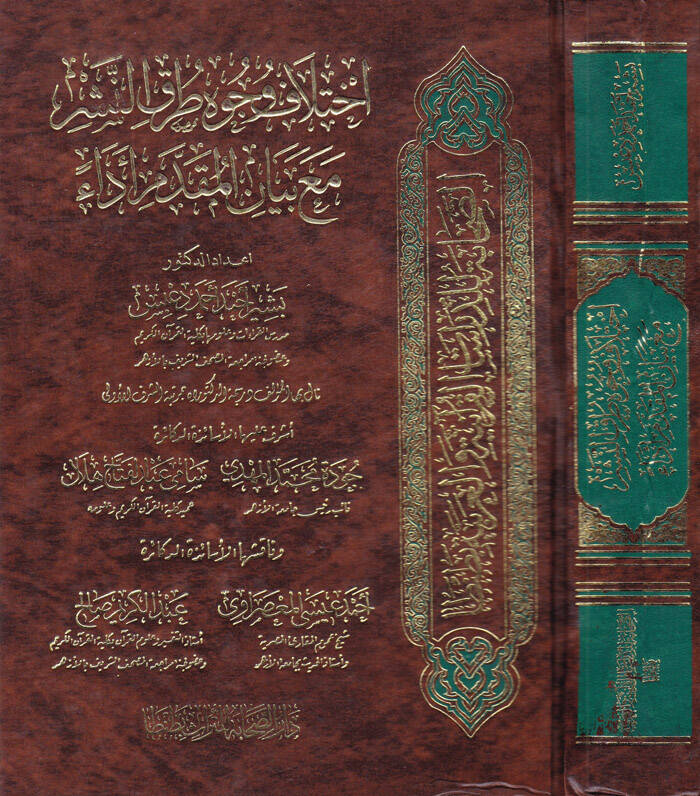 اختلاف وجوه طرق النشر
مع بيان المقدم أداءً
إعداد الدكتور
بشير أحمد أحمد دعبس
مدرس القراءات وعلومها بكلية القرآن الكريم
وعضو لجنة مراجعة المصحف الشريف بالأزهر
نال بها المؤلف درجة الدكتوراه بمرتبة الشرف الأولى
أشرف عليها الأساتذة الدكاترة
جودة محمد المهدي
سامي عبد الفتاح هلال
نائب رئيس جامعة الأزهر
عميد كلية القرآن الكريم وعلومه
وناقشها الأساتذة الدكاترة
أحمد عيسى المعصراوي
عبد الكريم صالح
شيخ عموم المقارئ المصرية
أستاذ التفسير وعلوم القرآن بكلية القرآن الكريم
وأستاذ الحديث بجامعة الأزهر
وعضو لجنة مراجعة المصحف الشريف بالأزهر
دار الصحابة للتراث بطنطا
اختلاف وجوه طرق النشر
مع بيان المقدم أداءً